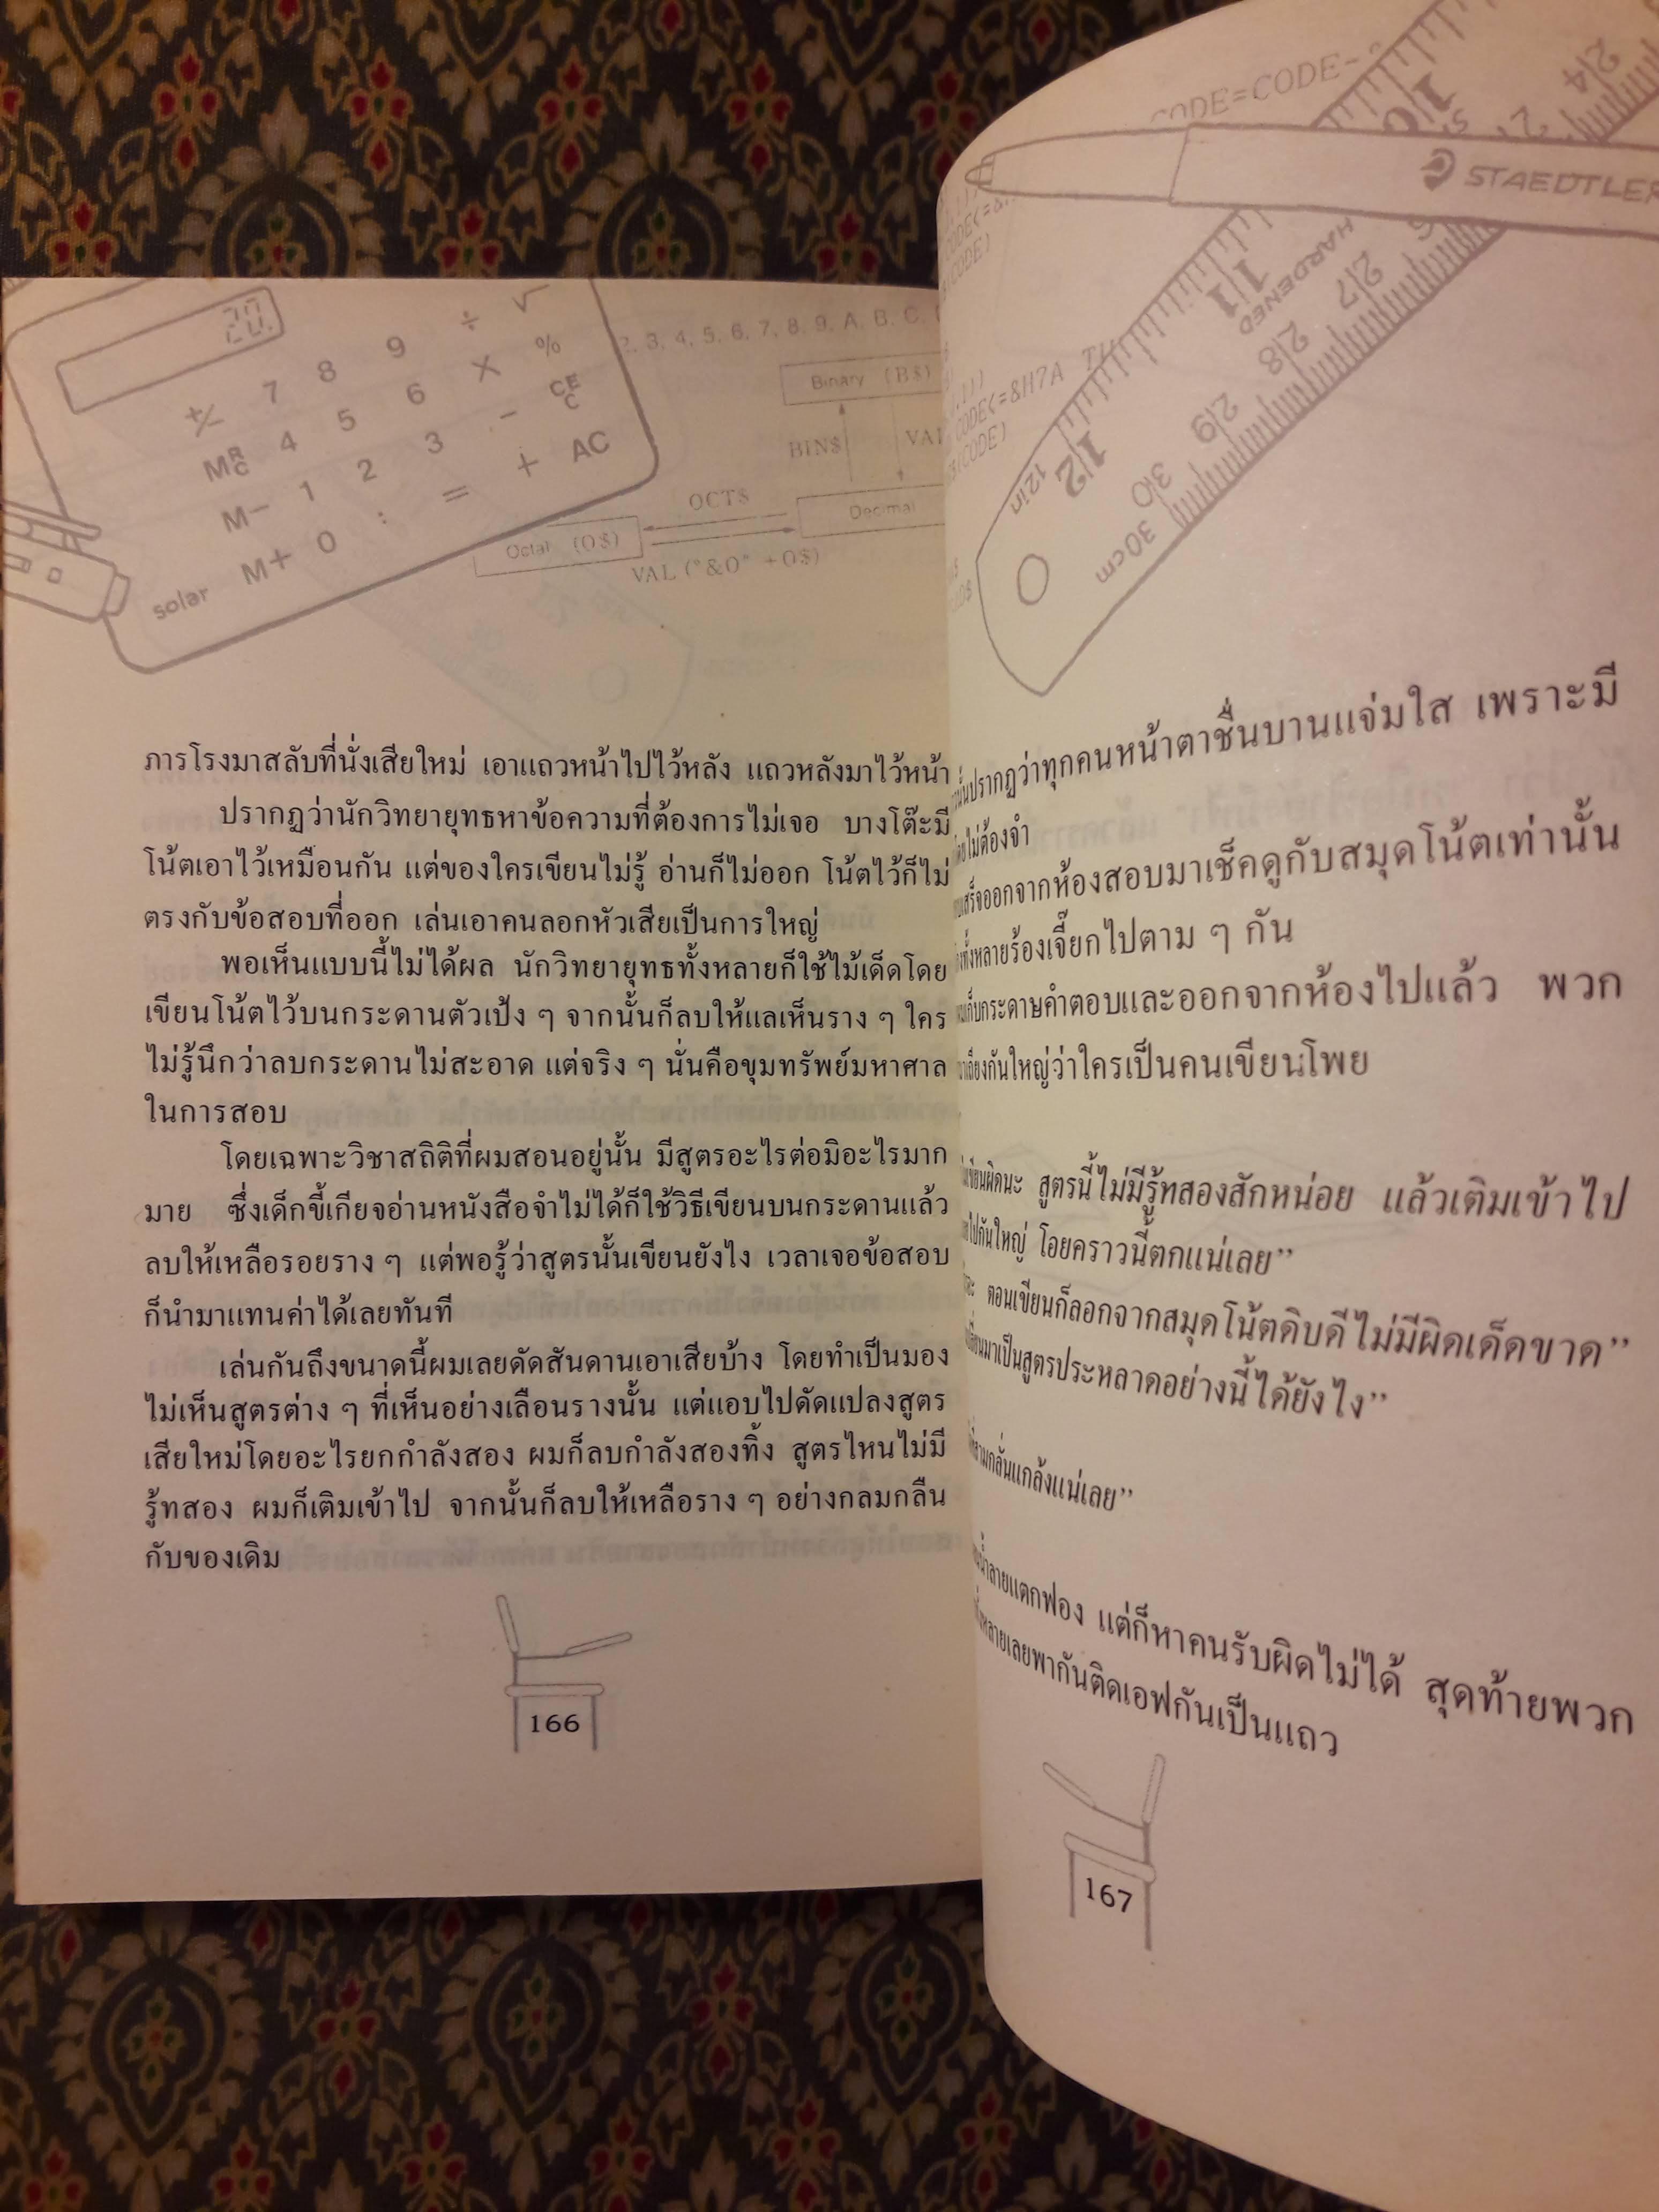 20.
7 8 9 ÷ √
+/− 4 5 6 X %
MRC 1 2 3 − CE C
M− 0 : = + AC
M+
solar
2, 3, 4, 5, 6, 7, 8, 9, A, B, C,
Binary (B$)
BIN$
OCT$
Decimal
Octal (O$)
VAL ("&O" +O$)
ภารโรงมาสลับที่นั่งเสียใหม่ เอาแถวหน้าไปไว้หลัง แถวหลังมาไว้หน้า
ปรากฏว่านักวิทยายุทธหาข้อความที่ต้องการไม่เจอ บางโต๊ะมี
โน้ตเอาไว้เหมือนกัน แต่ของใครเขียนไม่รู้ อ่านก็ไม่ออก โน้ตไว้ก็ไม่
ตรงกับข้อสอบที่ออก เล่นเอาคนลอกหัวเสียเป็นการใหญ่
พอเห็นแบบนี้ไม่ได้ผล นักวิทยายุทธทั้งหลายก็ใช้ไม้เด็ดโดย
เขียนโน้ตไว้บนกระดานตัวเป้ง ๆ จากนั้นก็ลบให้แลเห็นราง ๆ ใคร
ไม่รู้นึกว่าลบกระดานไม่สะอาด แต่จริง ๆ นั่นคือขุมทรัพย์มหาศาล
ในการสอบ
โดยเฉพาะวิชาสถิติที่ผมสอนอยู่นั้น มีสูตรอะไรต่อมิอะไรมาก
มาย ซึ่งเด็กขี้เกียจอ่านหนังสือจำไม่ได้ก็ใช้วิธีเขียนบนกระดานแล้ว
ลบให้เหลือรอยราง ๆ แต่พอรู้ว่าสูตรนั้นเขียนยังไง เวลาเจอข้อสอบ
ก็นำมาแทนค่าได้เลยทันที
เล่นกันถึงขนาดนี้ผมเลยดัดสันดานเอาเสียบ้าง โดยทำเป็นมอง
ไม่เห็นสูตรต่าง ๆ ที่เห็นอย่างเลือนรางนั้น แต่แอบไปดัดแปลงสูตร
เสียใหม่โดยอะไรยกกำลังสอง ผมก็ลบกำลังสองทิ้ง สูตรไหนไม่มี
รู้ทสอง ผมก็เติมเข้าไป จากนั้นก็ลบให้เหลือราง ๆ อย่างกลมกลืน
กับของเดิม
166
CODE=CODE-
STAEDTLER
HARDENED
24
10
11
27
28
29
30
12
12in
30cm
CODE<=&H7A
ปรากฏว่าทุกคนหน้าตาชื่นบานแจ่มใส เพราะมี
ไม่ต้องจำ
เสร็จออกจากห้องสอบมาเช็คดูกับสมุดโน้ตเท่านั้น
ทั้งหลายร้องเจี๊ยกไปตาม ๆ กัน
เก็บกระดาษคำตอบและออกจากห้องไปแล้ว พวก
เถียงกันใหญ่ว่าใครเป็นคนเขียนโพย
เขียนผิดนะ สูตรนี้ไม่มีรู้ทสองสักหน่อย แล้วเติมเข้าไป
ไปกันใหญ่ โอยคราวนี้ตกแน่เลย”
ตอนเขียนก็ลอกจากสมุดโน้ตดิบดีไม่มีผิดเด็ดขาด”
มาเป็นสูตรประหลาดอย่างนี้ได้ยังไง”
กลั่นแกล้งแน่เลย”
น้ำลายแตกฟอง แต่ก็หาคนรับผิดไม่ได้ สุดท้ายพวก
หลายเลยพากันติดเอฟกันเป็นแถว
167